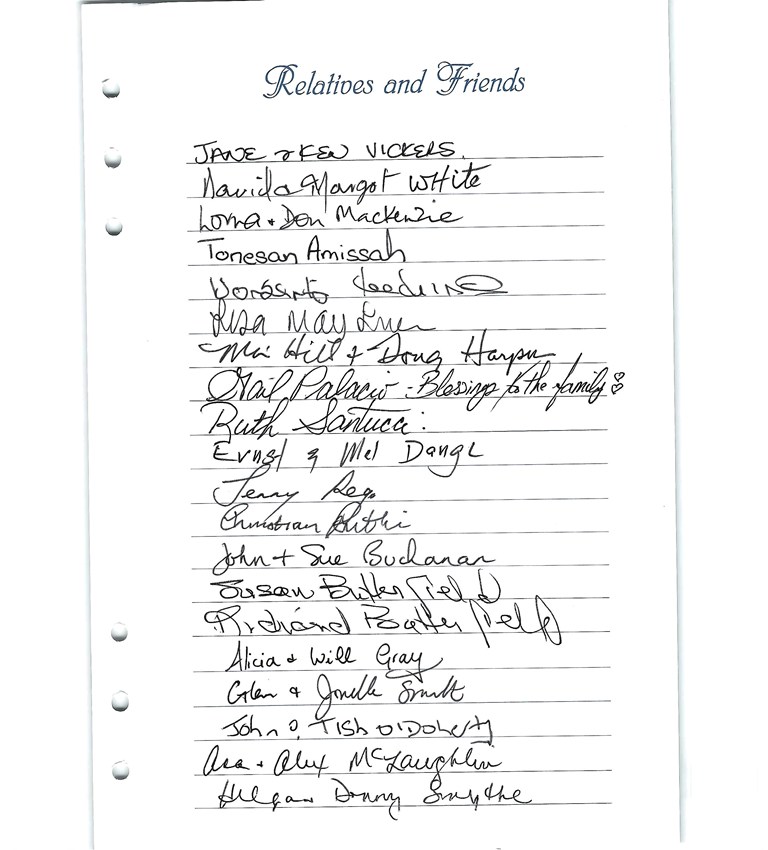 Relatives and Friends
JANE & KEN VICKERS.
David & Margot White
Lorna & Don Mackenzie
Tonesan Amissah
Lisa May
Hill & Doug Harper
Gail Palacio - Blessings to the family
Ruth Santucci
Ernst & Mel Dangl
Jerry
Christian
John + Sue Buchanan
Susan Butterfield
Richard Butterfield
Alicia & Will Gray
Glen &
John & Tish O'Doherty
Asa & Alex McLaughlin
Helga Danny Smythe